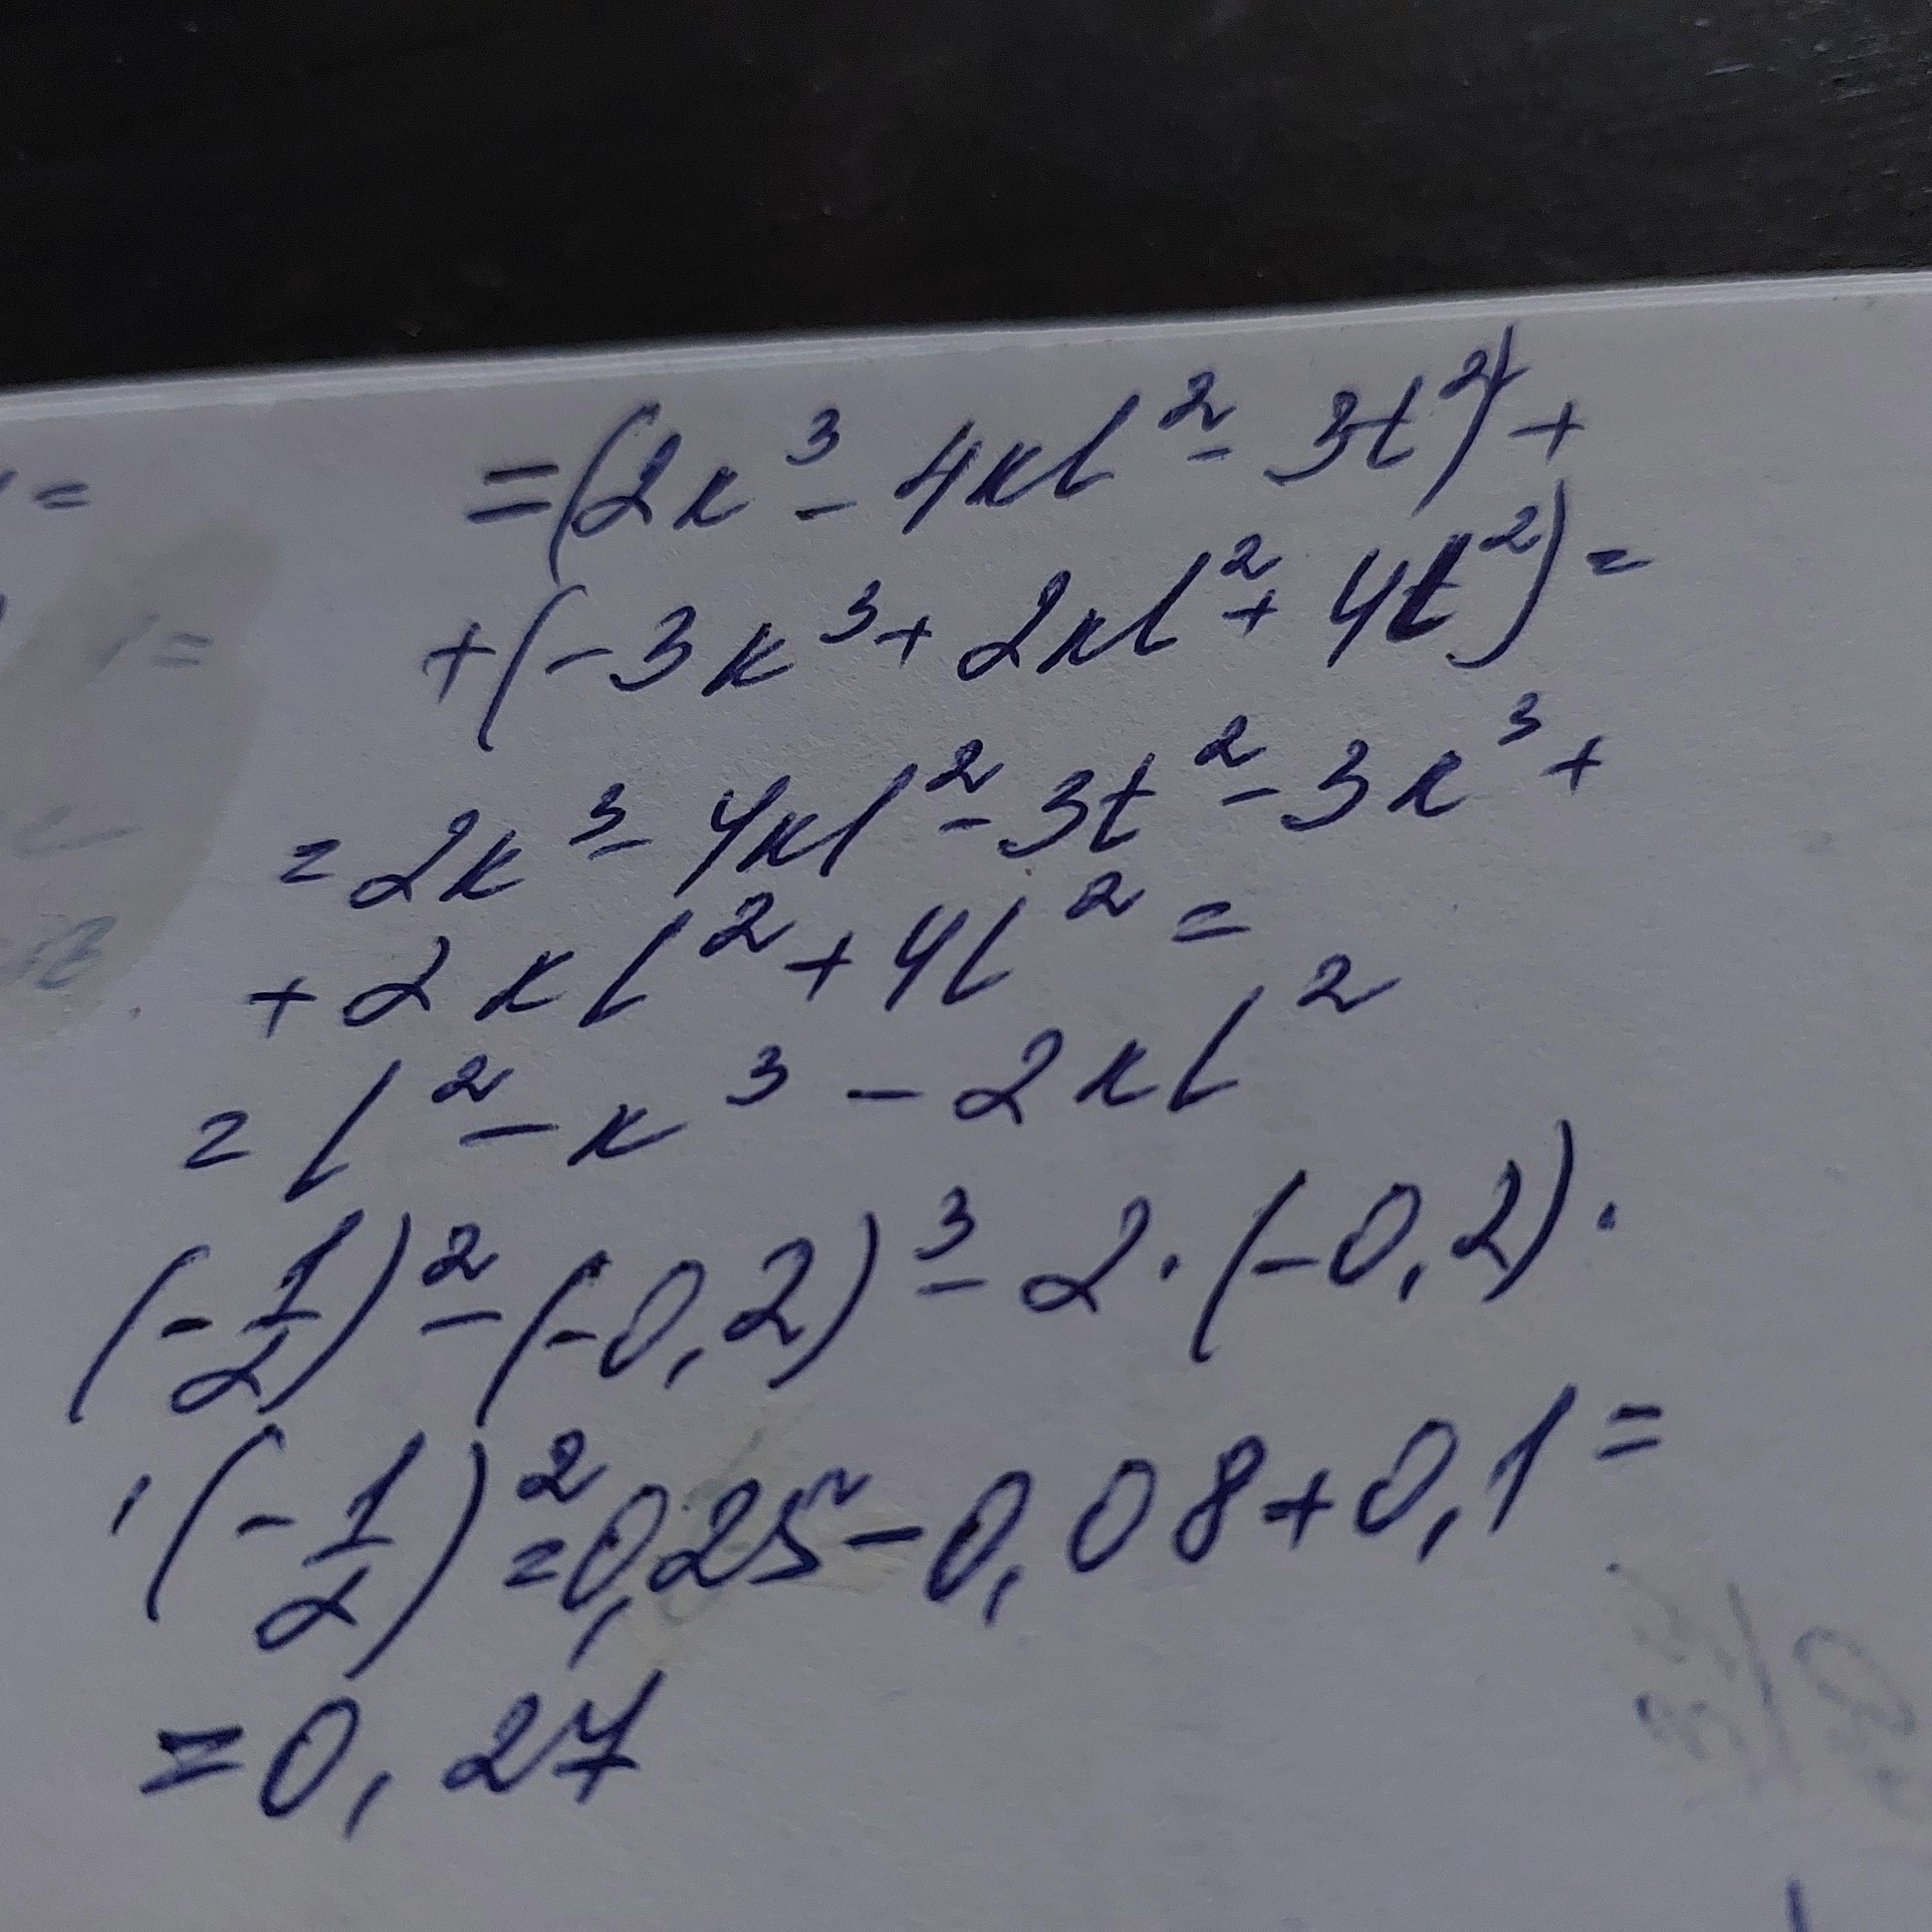 =(2к³ - 4кl² - 3t²) +
+(-3к³ + 2кl² + 4t²) =
= 2к³ - 4кl² - 3t² - 3к³ +
+ 2кl² + 4l² =
= l² - к³ - 2кl²
(-1/2)² - (-0,2)³ - 2·(-0,2)·
·(-1/2)² = 0,25 - 0,08 + 0,1 =
= 0,27